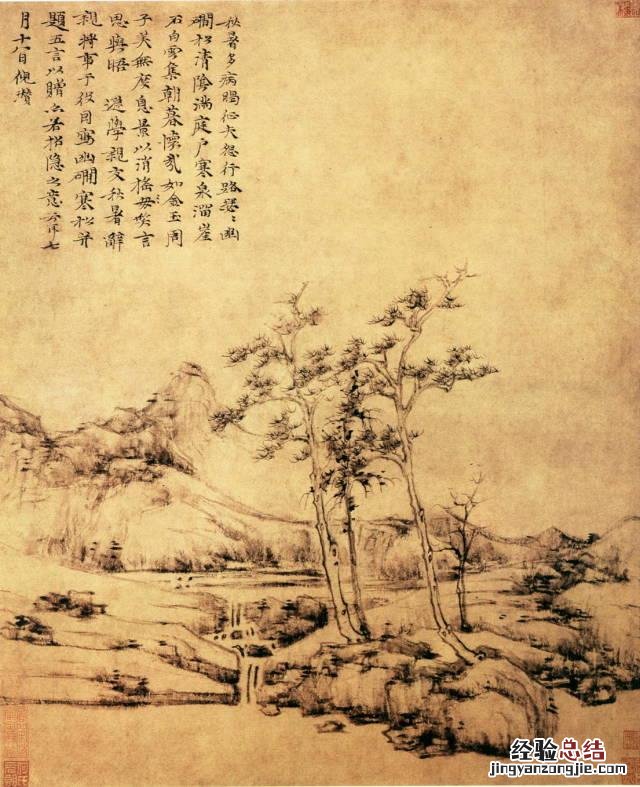 秋暑多病暍征夫怨行路瑟〻幽
磵松清陰滿庭户寒泉溜崖
石白雲集朝暮懷哉如金玉周
子美無度息景以消搖笑言
思與晤 遜學親友秋暑辭
親將事于役因寫幽磵寒松并
題五言以贈亦若招隱之意云耳七
月十八日倪瓚
经验总结
jingyanzongjie.com